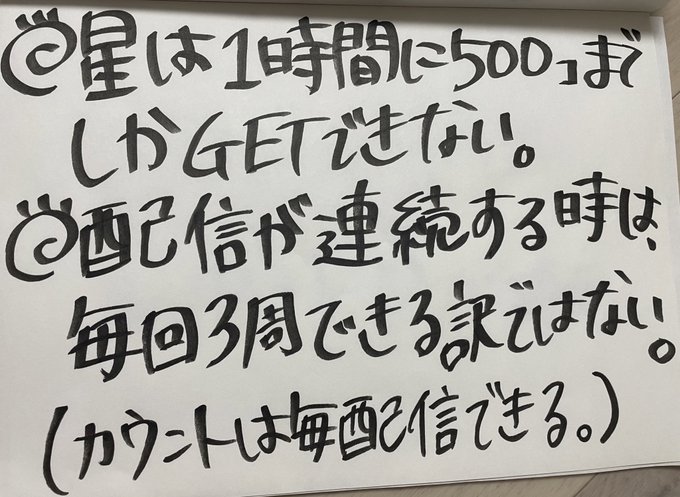 星は1時間に500コまで
しかGETできない。
配信が連続する時は、
毎回3周できる訳ではない。
(カウントは毎配信できる。)